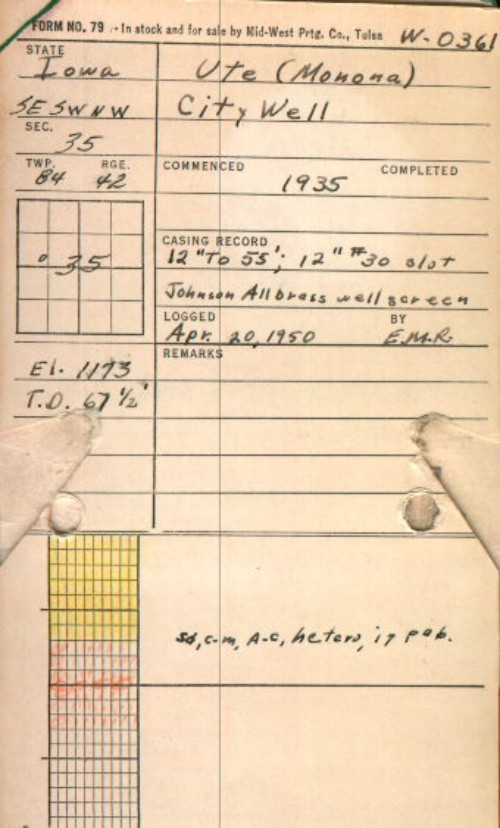 FORM NO. 79 - In stock and for sale by Mid-West Prtg. Co., Tulsa W-0361
STATE
Iowa Ute (Monona)
SE SW NW City Well
SEC.
35
TWP. RGE. COMMENCED COMPLETED
84 42 1935
35
CASING RECORD
12" To 55'; 12" #30 slot
Johnson All brass well screen
LOGGED BY
Apr. 20, 1950 E.M.R.
REMARKS
El. 1173
T.D. 67 1/2'
sd, c-m, A-c, hetero, ig peb.